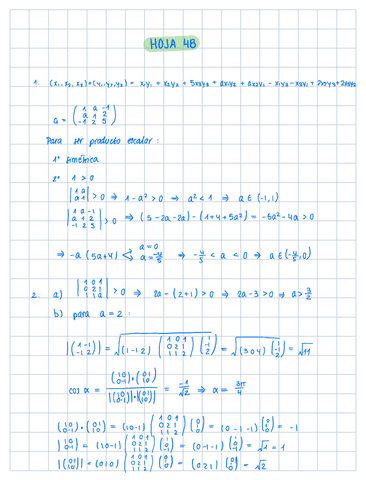 HOJA 4B
1. (x₁, x₂, x₃)·(y₁, y₂, y₃) = x₁y₁ + x₂y₂ + 5x₃y₃ + ax₁y₂ + ax₂y₁ - x₁y₃ - x₃y₁ + 2x₂y₃ + 2x₃y₂
G = ( 1 a -1 / a 1 2 / -1 2 5 )
Para ser producto escalar:
1º simétrica
2º 1 > 0
| 1 a / a 1 | > 0 ⇒ 1 - a² > 0 ⇒ a² < 1 ⇒ a ∈ (-1, 1)
| 1 a -1 / a 1 2 / -1 2 5 | > 0 ⇒ (5 - 2a - 2a) - (1 + 4 + 5a²) = -5a² - 4a > 0
⇒ -a (5a + 4) < a = 0 / a = -4/5 ⇒ -4/5 < a < 0 ⇒ a ∈ (-4/5, 0)
2. a) | 1 0 1 / 0 2 1 / 1 1 a | > 0 ⇒ 2a - (2 + 1) > 0 ⇒ 2a - 3 > 0 ⇒ a > 3/2
b) para a = 2:
|( 1 -1 / -1 2 )| = √( (1 -1 2) ( 1 0 1 / 0 2 1 / 1 1 2 ) ( 1 / -1 / 2 ) ) = √( (3 0 4) ( 1 / -1 / 2 ) ) = √11
cos α = ( 1 0 / 0 -1 ) · ( 0 1 / 1 0 ) / |( 1 0 / 0 -1 )| · |( 0 1 / 1 0 )| = -1/√2 ⇒ α = 3π/4
( 1 0 / 0 -1 ) · ( 0 1 / 1 0 ) = (1 0 -1) ( 1 0 1 / 0 2 1 / 1 1 2 ) ( 0 / 1 / 0 ) = (0 -1 -1) ( 0 / 1 / 0 ) = -1
| 1 0 / 0 -1 | = (1 0 -1) ( 1 0 1 / 0 2 1 / 1 1 2 ) ( 1 / 0 / -1 ) = (0 -1 -1) ( 1 / 0 / -1 ) = √1 = 1
|( 0 1 / 1 0 )| = (0 1 0) ( 1 0 1 / 0 2 1 / 1 1 2 ) ( 0 / 1 / 0 ) = (0 2 1) ( 0 / 1 / 0 ) = √2